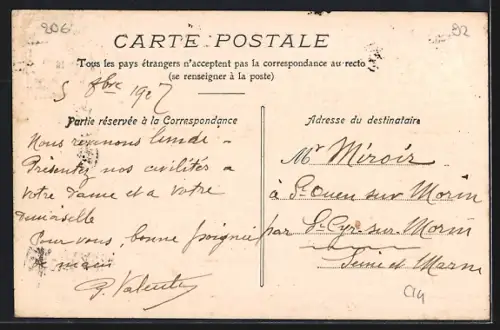 206
92
CARTE POSTALE
Tous les pays étrangers n'acceptent pas la correspondance au recto
(se renseigner à la poste)
5 8bre 1907
Partie réservée à la Correspondance
Nous revenons lundi -
Présentez nos civilités a
votre Dame et a votre
demoiselle
Pour vous, bonne poignée
de main
P. Valentin
Adresse du destinataire
Mr Miroir
à St Ouen sur Morin
par St Cyr-sur-Morin
Seine et Marne
C14